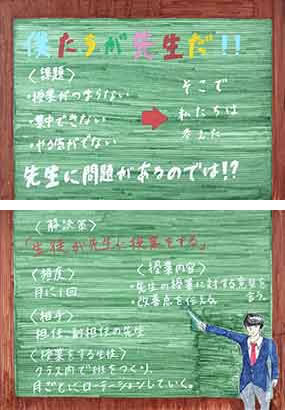 僕たちが先生だ!!
〈課題〉
・授業がつまらない
・集中できない
・やる気がでない
そこで
私たちは
考えた
先生に問題があるのでは!?
〈解決策〉
「生徒が先生に授業をする」
〈頻度〉
月に1回
〈相手〉
担任・副担任の先生
〈授業をする生徒〉
クラス内で班をつくり、
月ごとにローテーションしていく。
〈授業内容〉
・先生の授業に対する意見を
言う。
・改善点を伝える